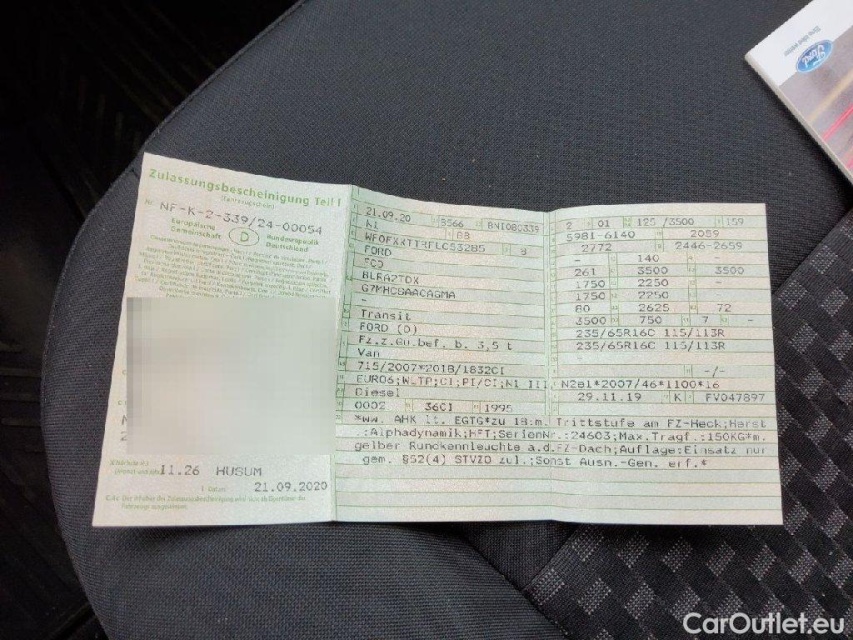 Ford
Zulassungsbescheinigung Teil I
(Fahrzeugschein)
Nr. NF-K-2-339/24-00054
Europäische Gemeinschaft
D
Bundesrepublik Deutschland
11.26 HUSUM
21.09.2020
21.09.20 8566 BNI080339
N1 BB
FORD 8
FCD
Transit
FORD (D)
Fz.z.Gü.bef. b. 3,5 t
Van
715/2007*2018/1832CI
EURO6;WLTP;CI;PI/CI;N1 III
Diesel
0002 36CI 1995
2 01 125 /3500 159
5981-6140 2059
2772 2446-2659
- 140 - -
261 3500 3500
1750 2250 -
1750 2250 -
80 2625 72
3500 750 7 -
235/65R16C 115/113R
235/65R16C 115/113R
-/-
N2e1*2007/46*1100*16
29.11.19 K FV047897
*ww. AHK lt. EGTG*zu 18:m. Trittstufe am FZ-Heck;Herst
:Alphadynamik;HFT;SerienNr.:24603;Max.Tragf.:150KG*m.
gelber Rundkennleuchte a.d.FZ-Dach;Auflage:Einsatz nur
gem. §52(4) STVZO zul.;Sonst Ausn.-Gen. erf.*
CarOutlet.eu